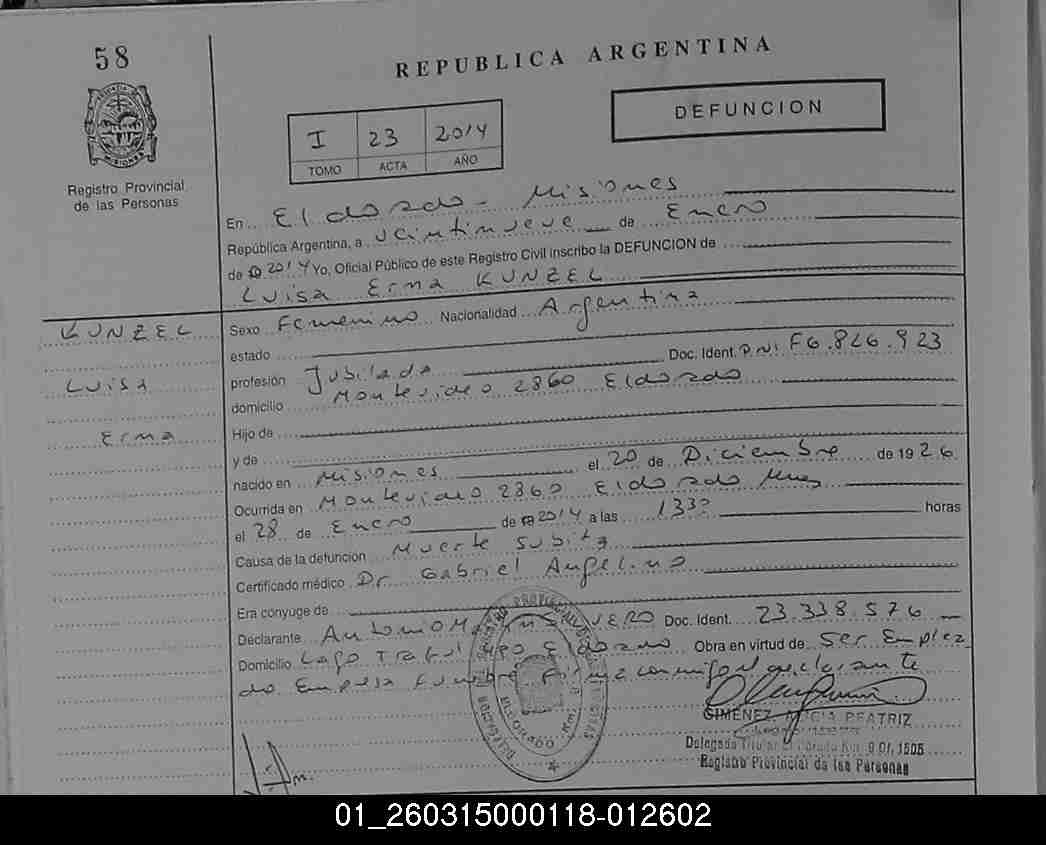 58
REPUBLICA ARGENTINA
DEFUNCION
I 23 2014
TOMO ACTA AÑO
Registro Provincial
de las Personas
En Eldorado - Misiones
República Argentina, a veintinueve de Enero
de 2014 Yo, Oficial Público de este Registro Civil inscribo la DEFUNCION de
Luisa Erma KUNZEL
KUNZEL
Luisa
Erma
Sexo Femenino Nacionalidad Argentina
estado
profesión Jubilada Doc. Ident. D.N.I F6.826.923
domicilio Montevideo 2860 Eldorado
Hijo de
y de
nacido en Misiones el 20 de Diciembre de 1926
Ocurrida en Montevideo 2860 Eldorado Mnes
el 28 de Enero de 2014 a las 1330 horas
Causa de la defunción Muerte subita
Certificado médico Dr. Gabriel Angelino
Era cónyuge de
Declarante Antonio Doc. Ident. 23.338.576
Domicilio Lago Eldorado Obra en virtud de Ser Emplea
do Empresa Funebre Firma conmigo el declarante
GIMENEZ BEATRIZ
Delegada Titular Eldorado Km. 9 Of. 1505
Registro Provincial de las Personas
01_260315000118-012602